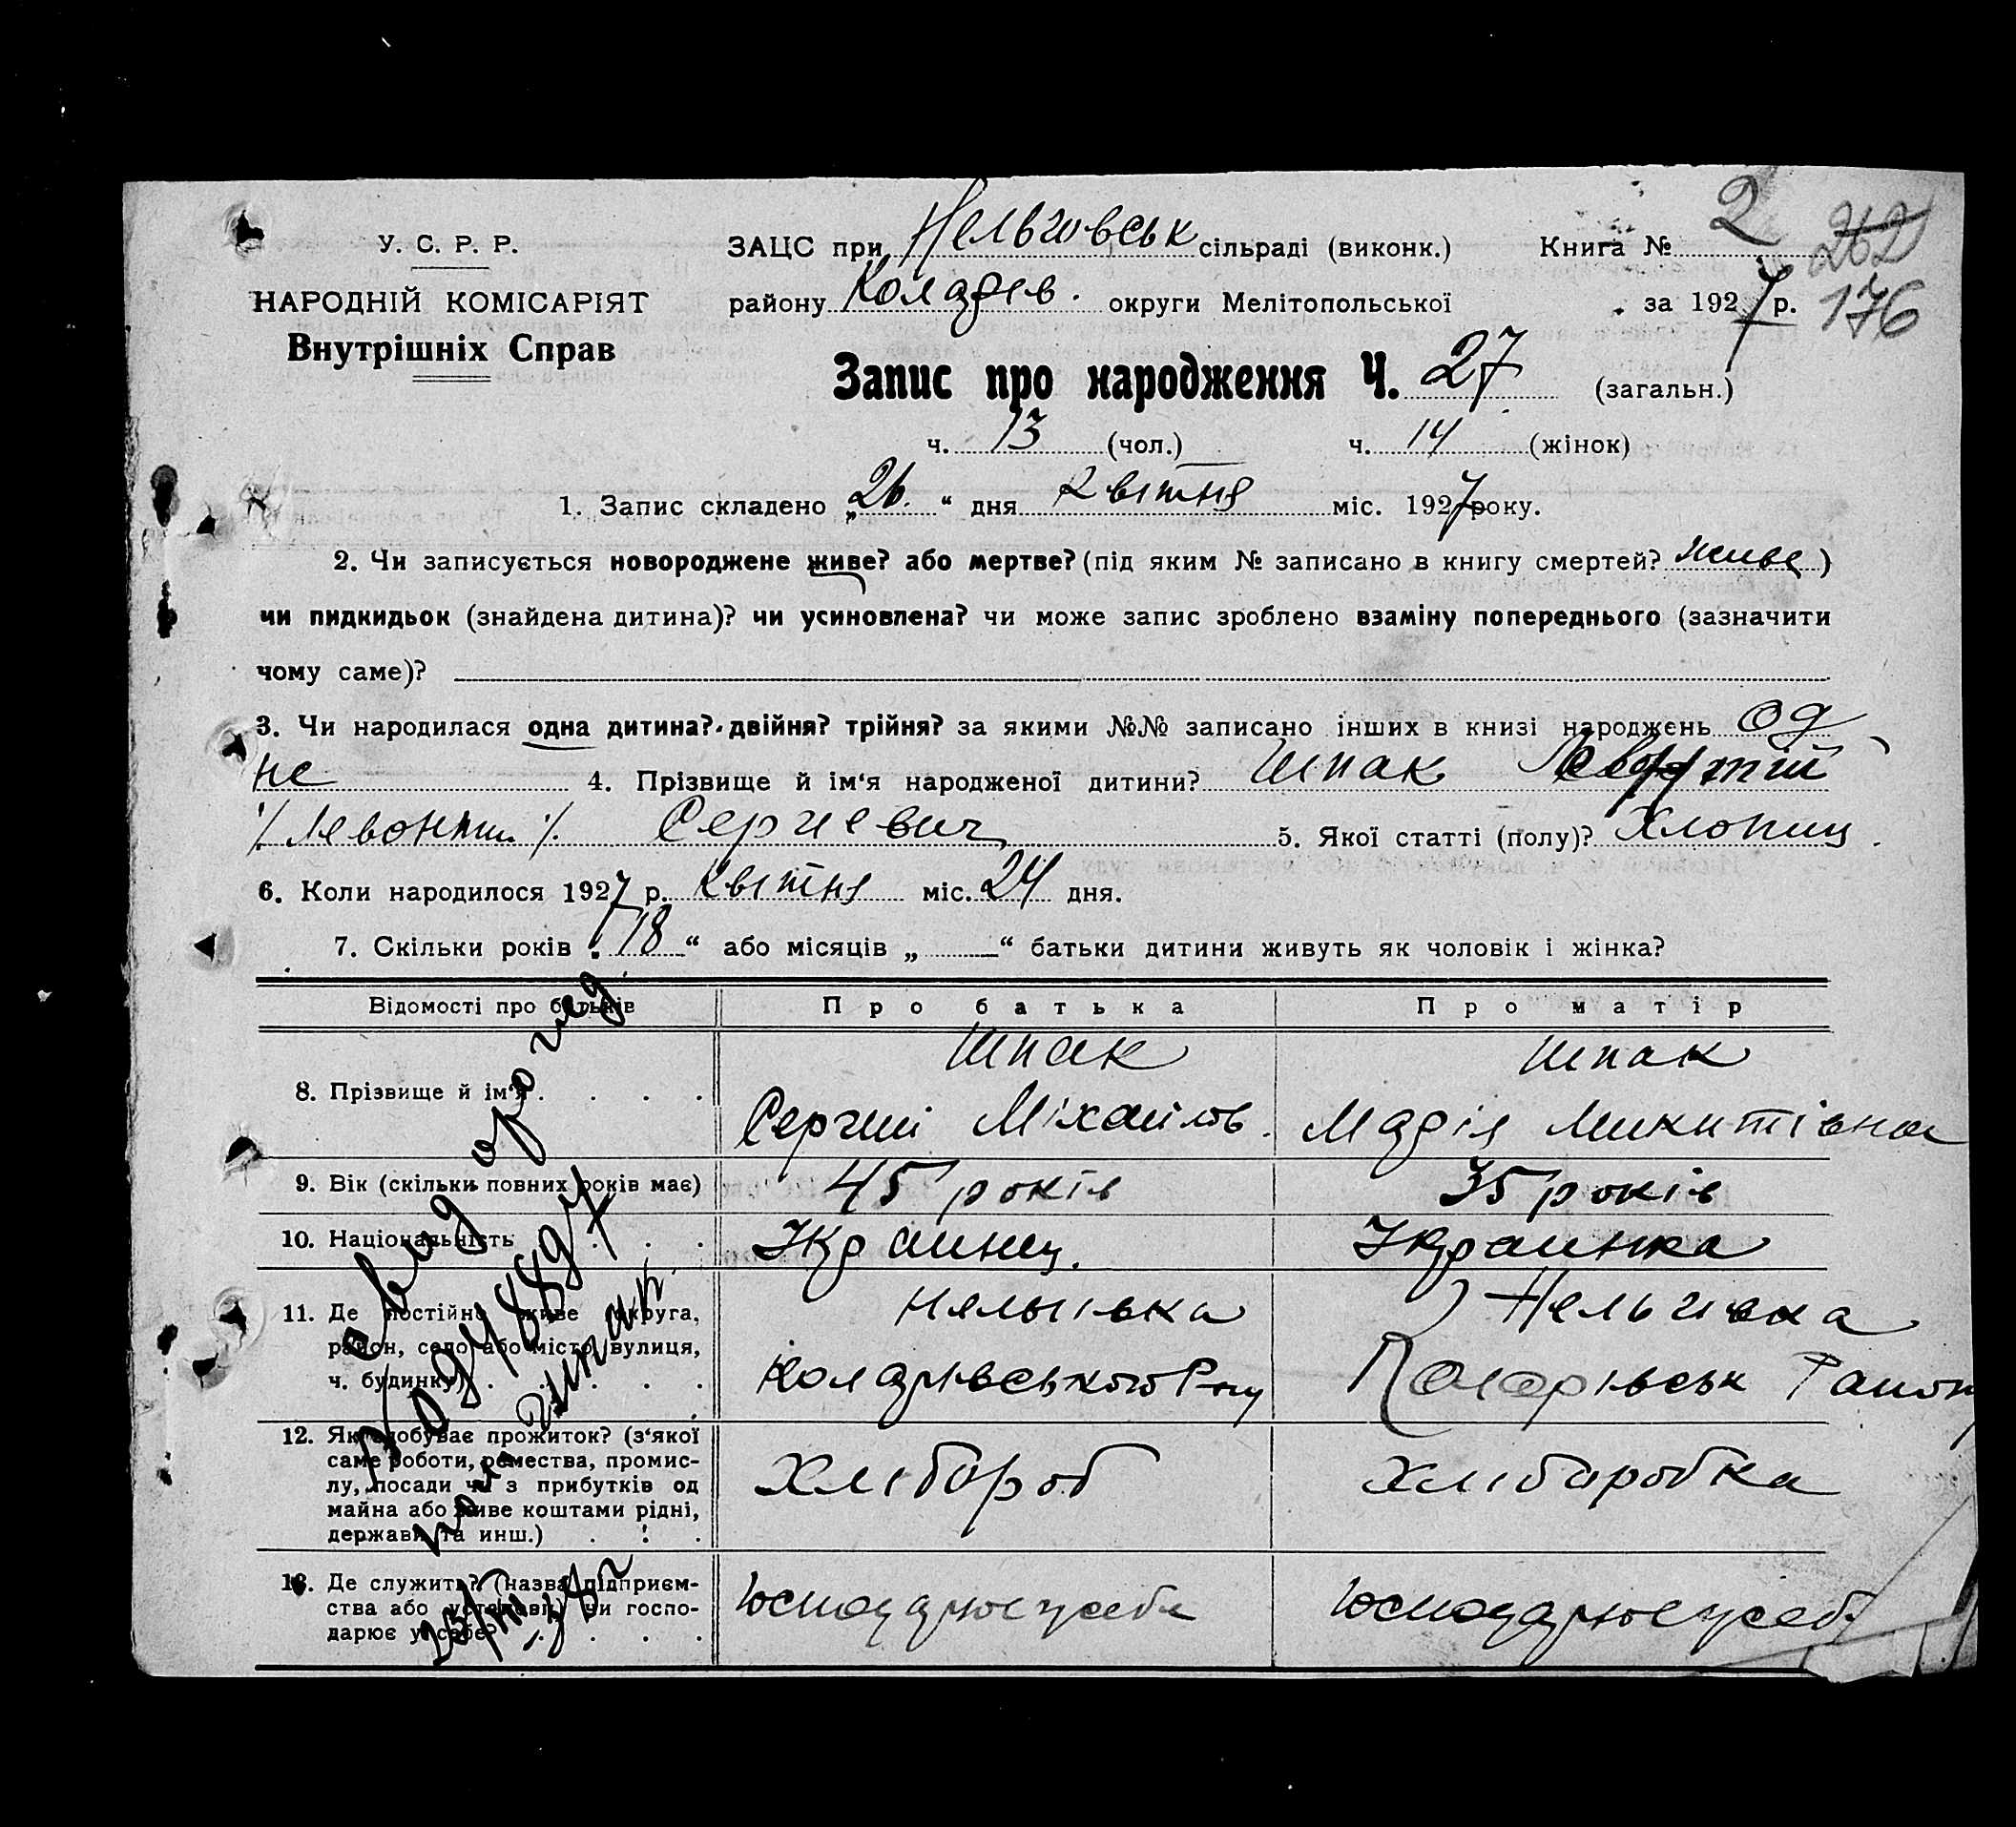 У. С. Р. Р.
НАРОДНІЙ КОМІСАРІЯТ
Внутрішніх Справ
ЗАЦС при Нельговськ сільраді (виконк.) Книга № 2
262
району Коларев. округи Мелітопольської за 1927 р.
176
Запис про народження Ч. 27 (загальн.)
ч. 13 (чол.) ч. 14 (жінок)
1. Запис складено „26.“ дня Квітня міс. 1927 року.
2. Чи записується новороджене живе? або мертве? (під яким № записано в книгу смертей? живе)
чи пидкидьок (знайдена дитина)? чи усиновлена? чи може запис зроблено взаміну попереднього (зазначити
чому саме)?
3. Чи народилася одна дитина? двійня? трійня? за якими №№ записано інших в книзі народжень од
не 4. Прізвище й ім‘я народженої дитини? Шпак
Сергиевич 5. Якої статті (полу)? Хлопиц
6. Коли народилося 1927 р. Квітня міс. 24 дня.
7. Скільки років „18“ або місяців „ “ батьки дитини живуть як чоловік і жінка?
Відомості про батьків Про батька Про матір
8. Прізвище й ім‘я Шпак Шпак
Сергий Міхайлов. Марія Микитівна
9. Вік (скільки повних років має) 45 років 35 років
10. Національність Украинец. Украинка
11. Де постійно живе округа, Нельгівка
район, село або місто, вулиця,
ч. будинку) Коларівського Р-ну Коларівськ
12. Як здобуває прожиток? (з‘якої
саме роботи, ремества, промис-
лу, посади чи з прибутків од Хлібороб Хліборобка
майна або живе коштами рідні,
держави та инш.)
13. Де служить? (назва підприєм-
ства або установи) чи госпо-
дарює у себе?